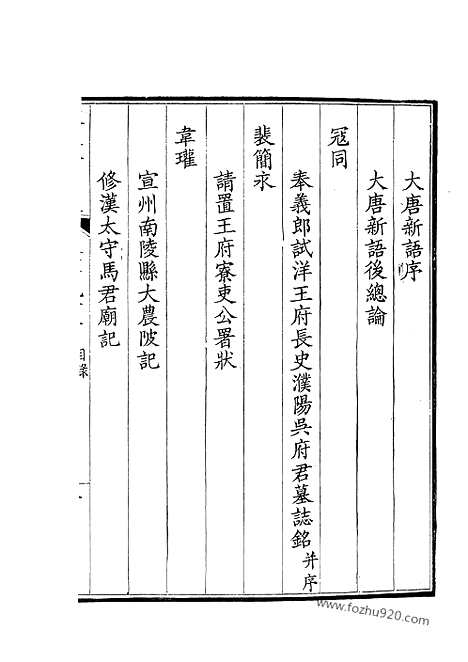 大唐新語序
大唐新語後總論
寇同
奉義郎試洋王府長史濮陽吳府君墓誌銘并序
裴簡永
請置王府寮吏公署狀
韋瓘
宣州南陵縣大農陂記
修漢太守馬君廟記
目錄
www.fozhu920.com